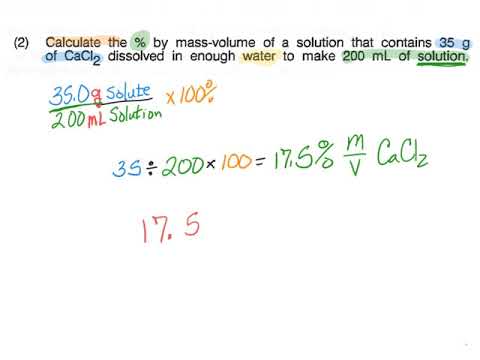 (2) Calculate the % by mass-volume of a solution that contains 35 g
of CaCl₂ dissolved in enough water to make 200 mL of solution.
35.0g solute
200 mL Solution
×100%
35 ÷ 200 × 100 = 17.5% m/v CaCl₂
17.5